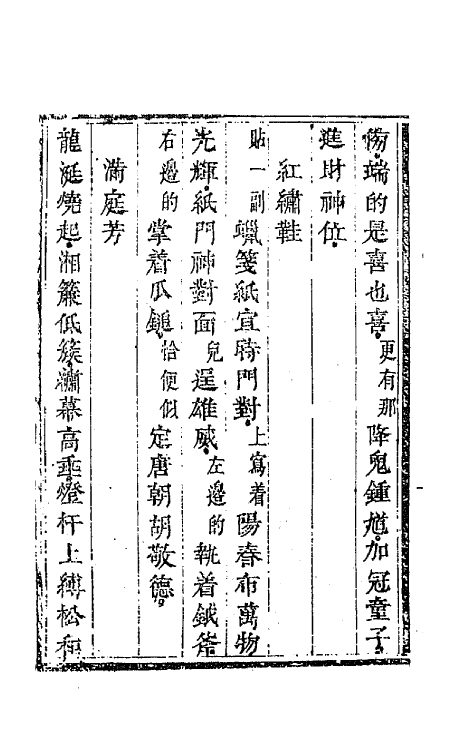 傷端的是喜也喜更有那降鬼鍾馗加冠童子
進財神位
紅繡鞋
貼一副蠟箋紙宜時門對上寫着陽春布萬物
光輝紙門神對面兒逞雄威左邊的執着鉞斧
右邊的掌着瓜鎚恰便似定唐朝胡敬德
滿庭芳
龍涎燒起湘簾低簇瀟幕高垂燈杆上縛松和